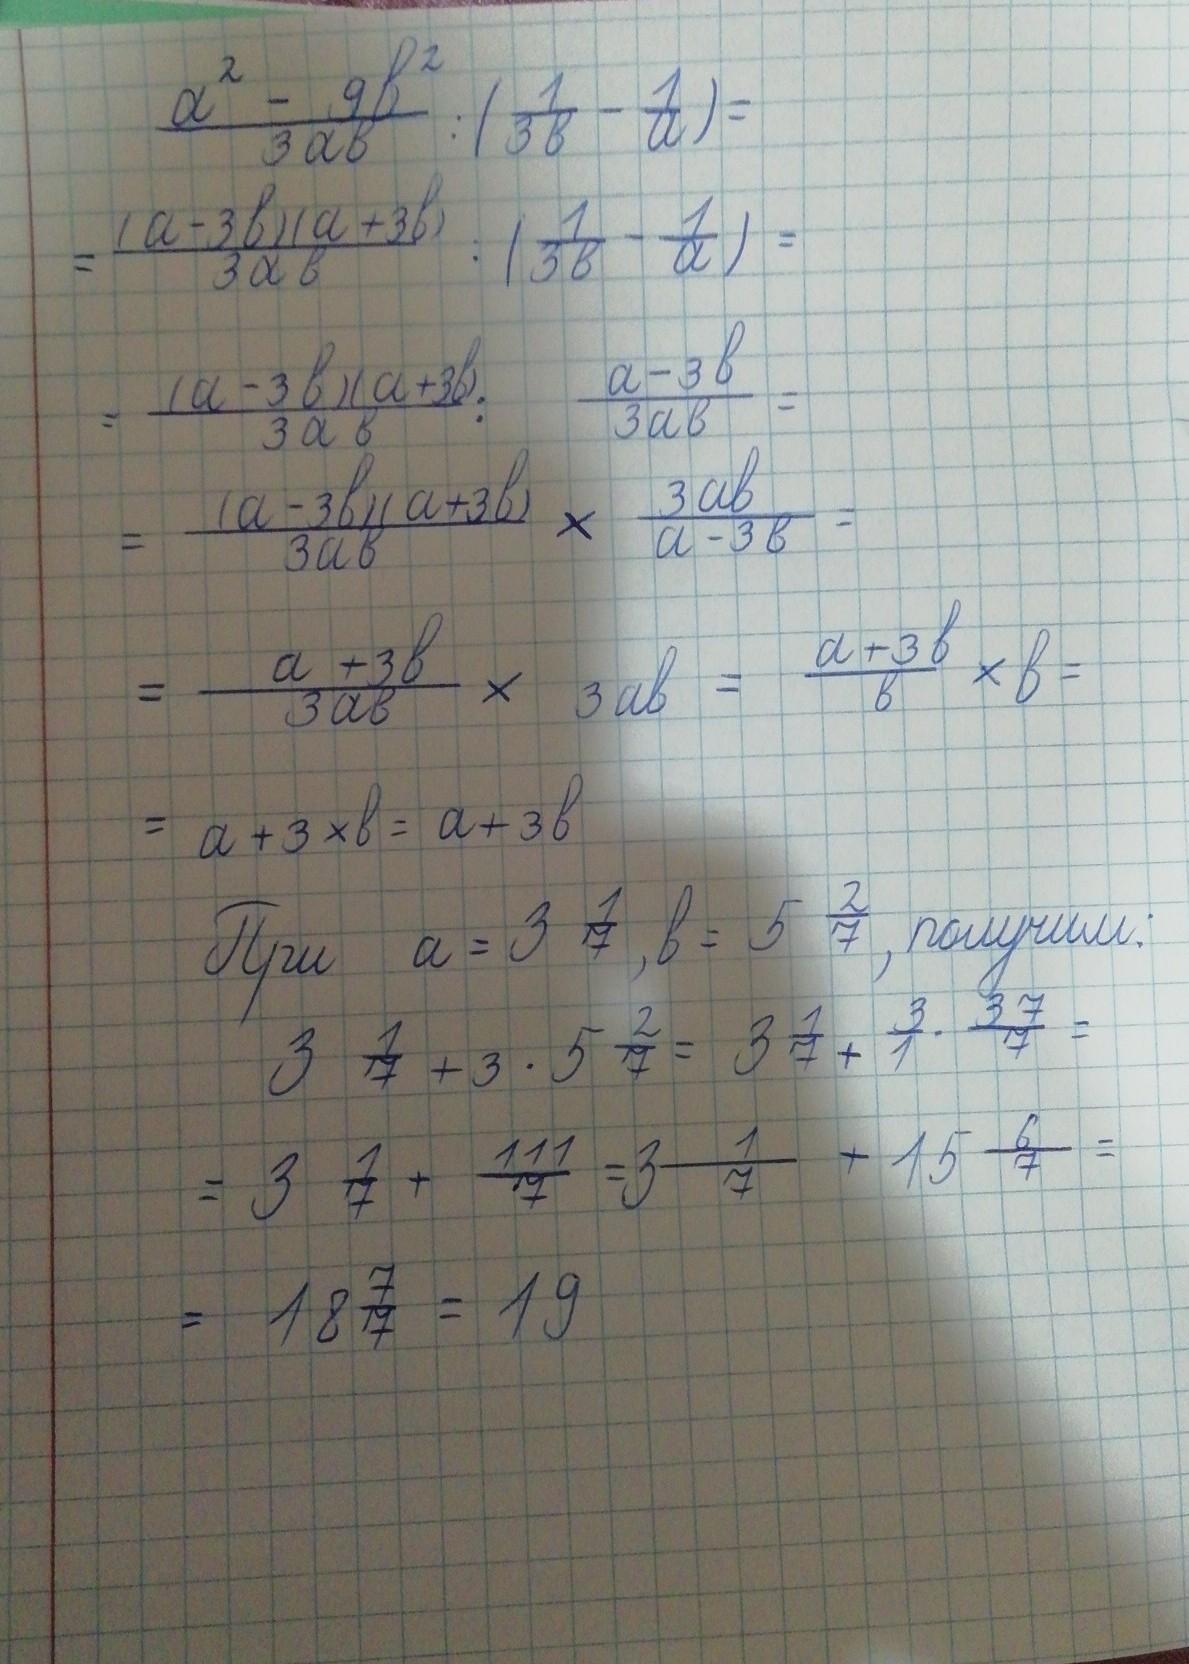 a² - 9b² / 3ab : ( 1/3b - 1/a ) =
= (a-3b)(a+3b) / 3ab : ( 1/3b - 1/a ) =
= (a-3b)(a+3b) / 3ab : a-3b / 3ab =
= (a-3b)(a+3b) / 3ab × 3ab / a-3b =
= a+3b / 3ab × 3ab = a+3b / b × b =
= a+3×b = a+3b
При a = 3 1/7, b = 5 2/7, получим:
3 1/7 + 3 · 5 2/7 = 3 1/7 + 3/1 · 37/7 =
= 3 1/7 + 111/7 = 3 1/7 + 15 6/7 =
= 18 7/7 = 19